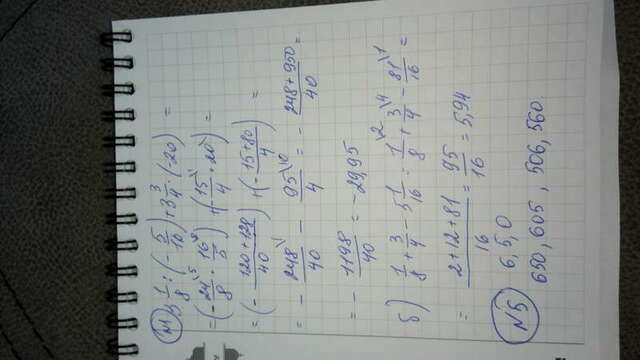 N1 а) 1/8 : (-5/10) + 3 3/4 (-20) =
= (-24/8\5 · 16/5\8) + (-15/4\1 · 20\4) =
= (- 120+128/40) + (- 15+80/4) =
= - 248/40\1 - 95/4\10 = - 248+950/40 =
= - 1198/40 = -29,95
б) 1/8 + 3/4 - 5 1/16 = 1/8\2 + 3/4\4 - 81/16\1 =
= 2+12+81/16 = 95/16 = 5,94
N5 6, 5, 0
650, 605, 506, 560